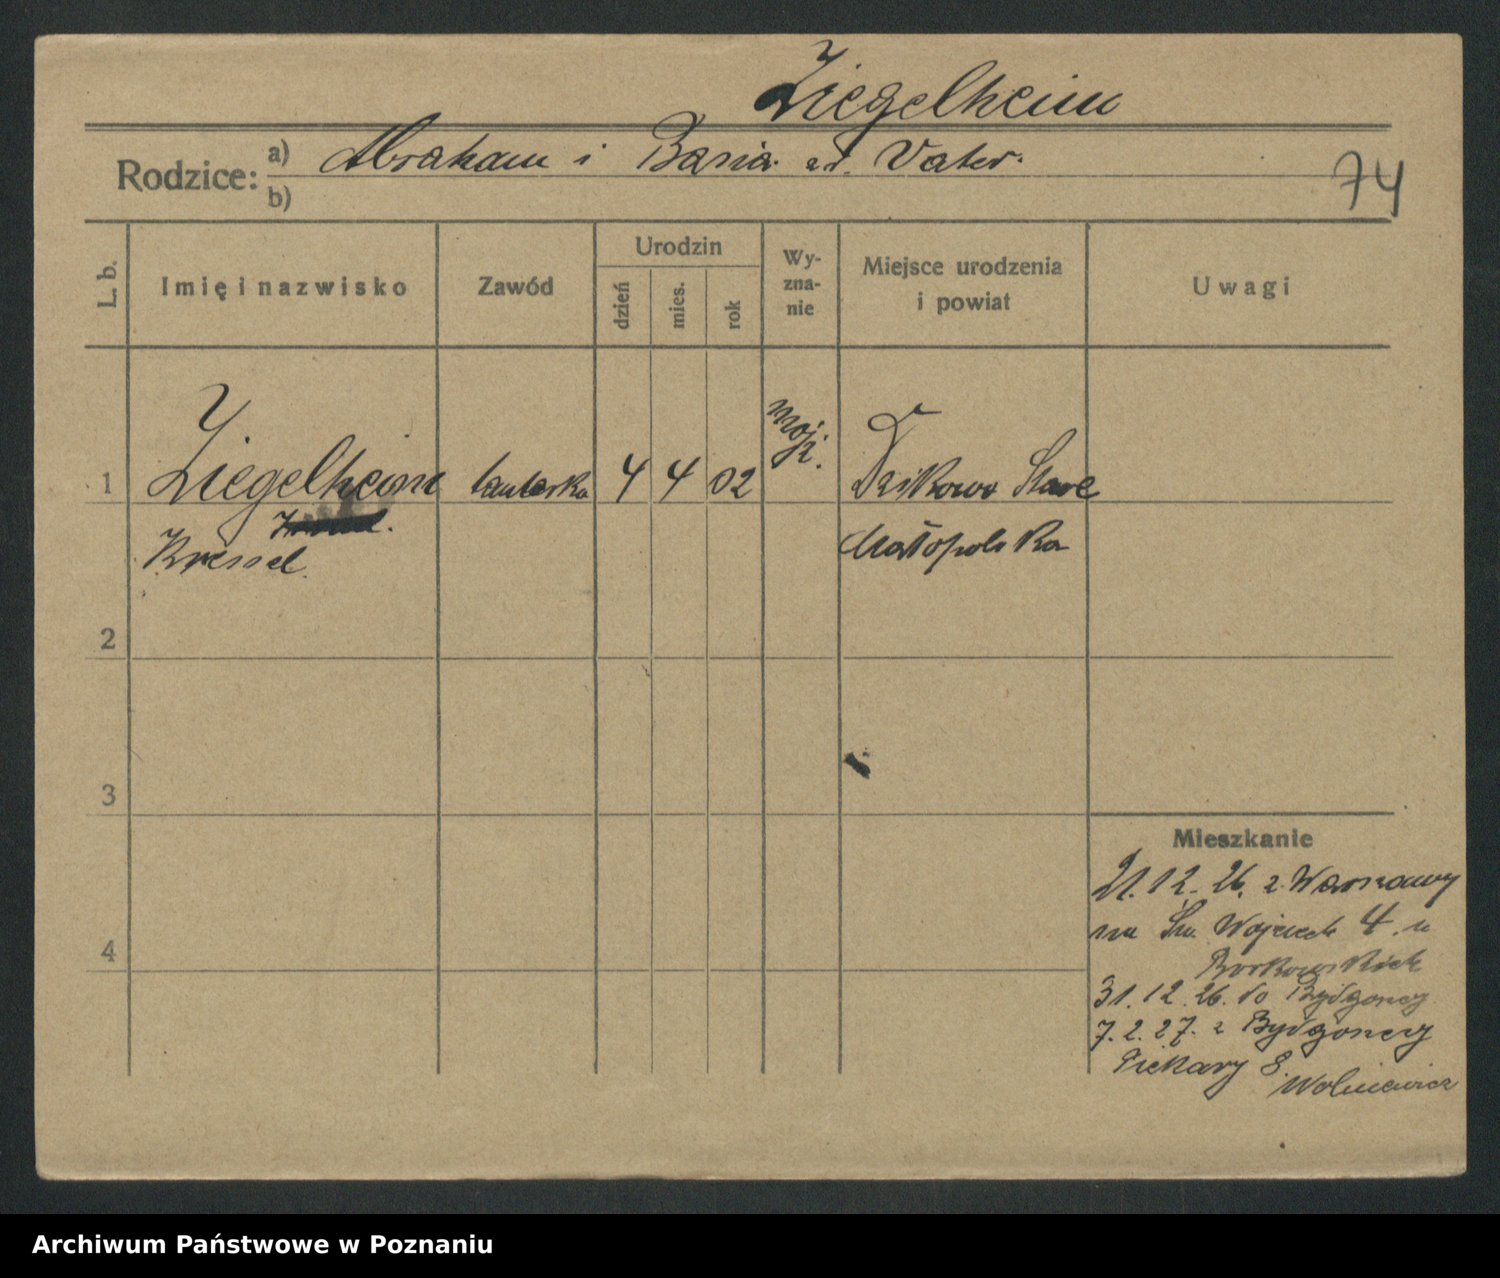 Ziegelheim
Rodzice: a) Abraham i Basia z d. Vater.
b)
74
L. b.
Imię i nazwisko
Zawód
Urodzin
dzień
mies.
rok
Wy-
zna-
nie
Miejsce urodzenia
i powiat
Uwagi
1 Ziegelheim 4 4 02 mojż. Dzikowo Stare
Małopolska
2
3
4
Mieszkanie
21.12.26. z Warszawy
na Św. Wojciech 4. u
Borkowskich
31.12.26. do Bydgoszczy
7.2.27. z Bydgoszczy
Piekary 8
Wolniewicz
Archiwum Państwowe w Poznaniu